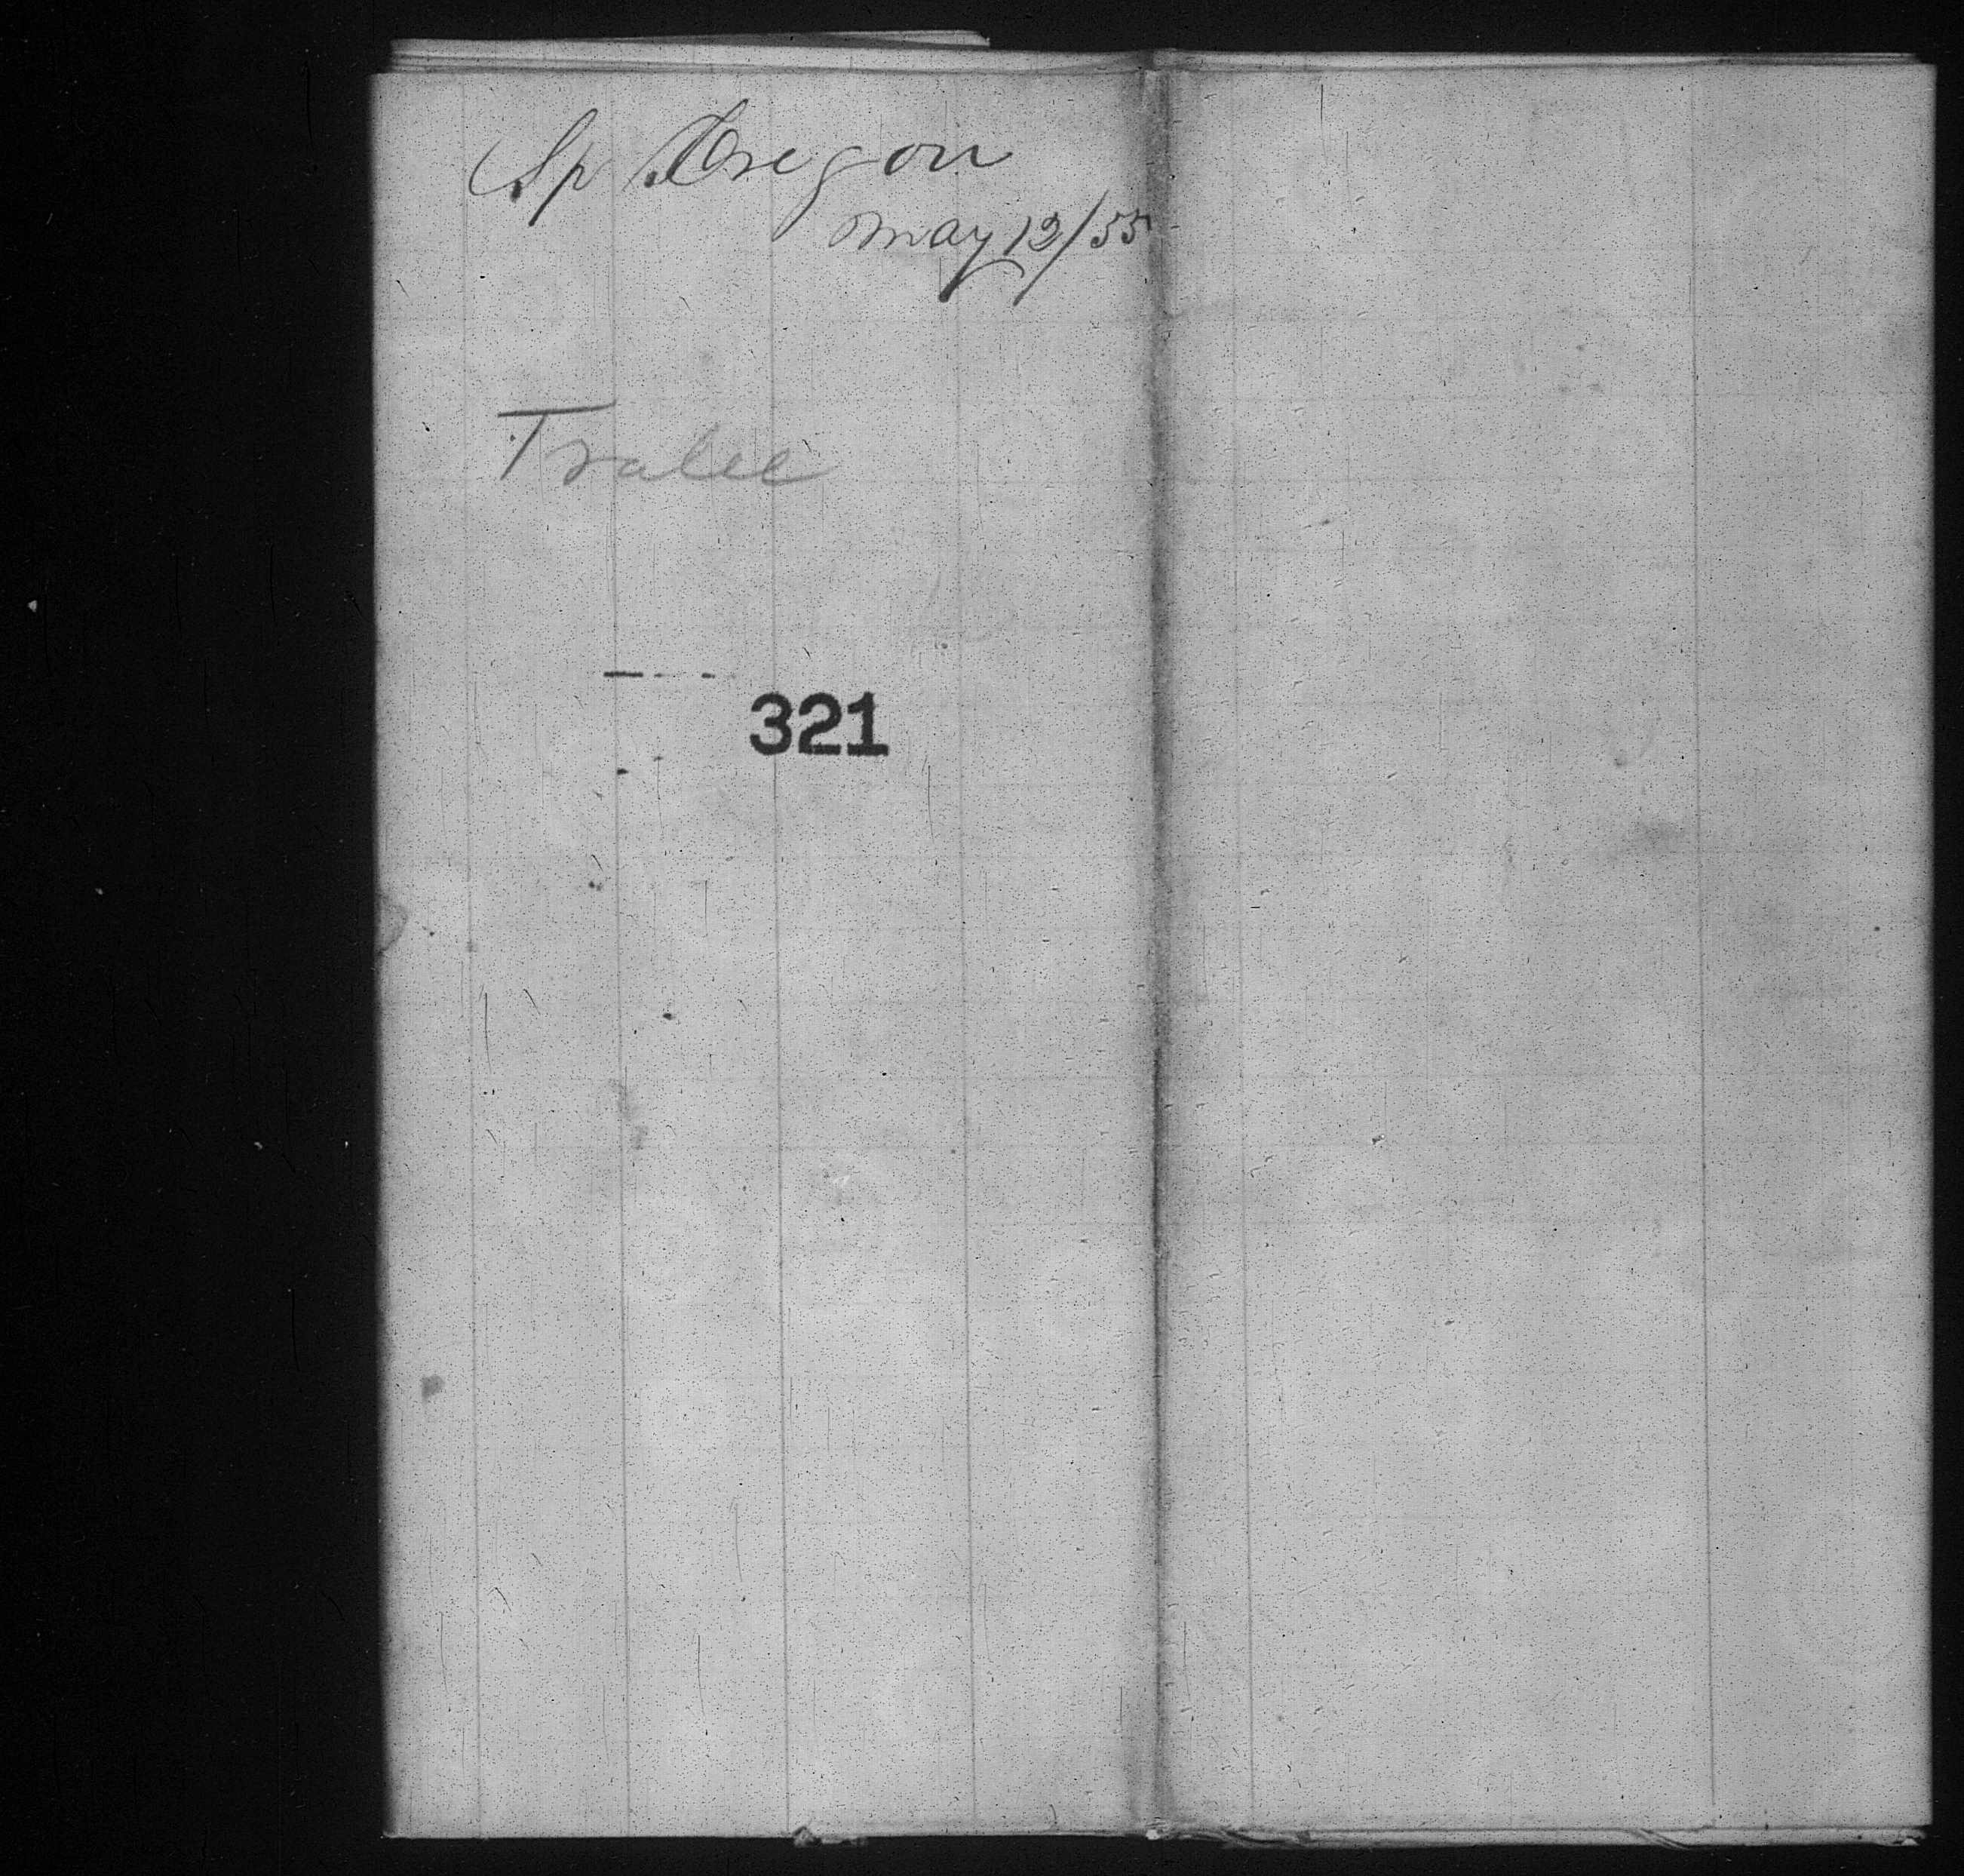 Sp Oregon
May 12/55
Tralee
321